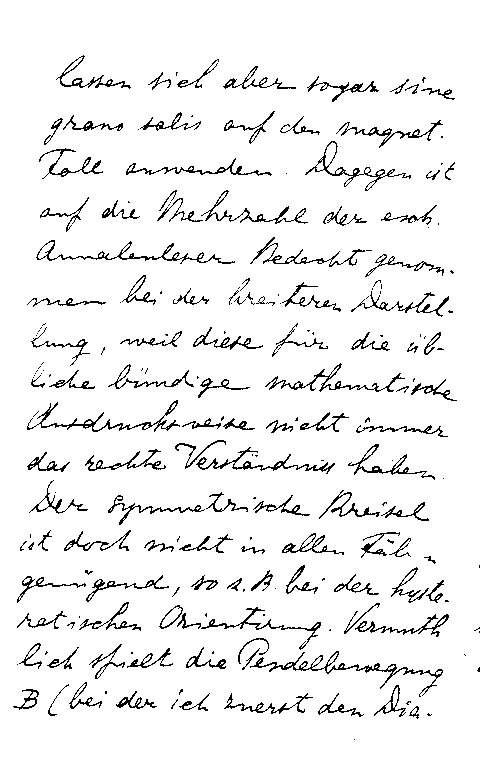 lassen sich aber sogar sine
grano salis auf den magnet.
Fall anwenden. Dagegen ist
auf die Mehrzahl der
Annalenleser Bedacht genom-
men bei der breiteren Darstel-
lung, weil diese für die üb-
liche bündige mathematische
Ausdrucksweise nicht immer
das rechte Verständniss haben.
Der symmetrische Kreisel
ist doch nicht in allen
genügend, so z. B. bei der hyste-
retischen Orientirung. Vermuth
lich spielt die Pendelbewegung
B (bei der ich zuerst den Dia-